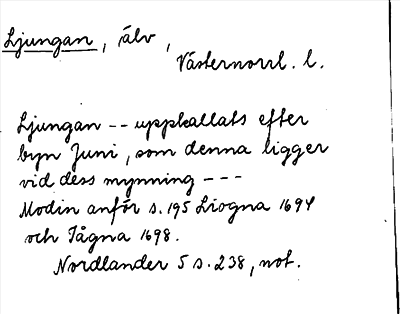 Ljungan, älv,
Västernorrl. l.
Ljungan -- uppkallats efter
byn Juni, som denna ligger
vid dess mynning ---
Modin anför s. 195 Liogna 1694
och Iågna 1698.
Nordlander 5 s. 238, not.